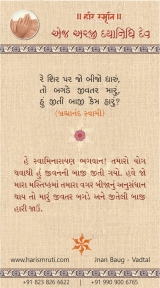 ॥ હરિ સ્મૃતિ ॥
એજ અરજી દયાનિધિ દેવ
રે શિર પર જો બીજો ધારું,
તો બગડે જીવતર મારું,
હું જીતી બાજી કેમ હારું?
(બ્રહ્માનંદ સ્વામી)
હે સ્વામિનારાયણ ભગવાન! તમારો યોગ
થવાથી હું જીવનની બાજી જીતી ગયો. હવે જો
મારા મસ્તિષ્કમાં તમારા વગર બીજાનું અનુસંધાન
થાય તો મારું જીવતર બગડે અને જીતેલી બાજી
હારી જાઉં.
www.harismruti.com
Jnan Baug - Vadtal
+91 823 826 6622
+91 990 900 6765